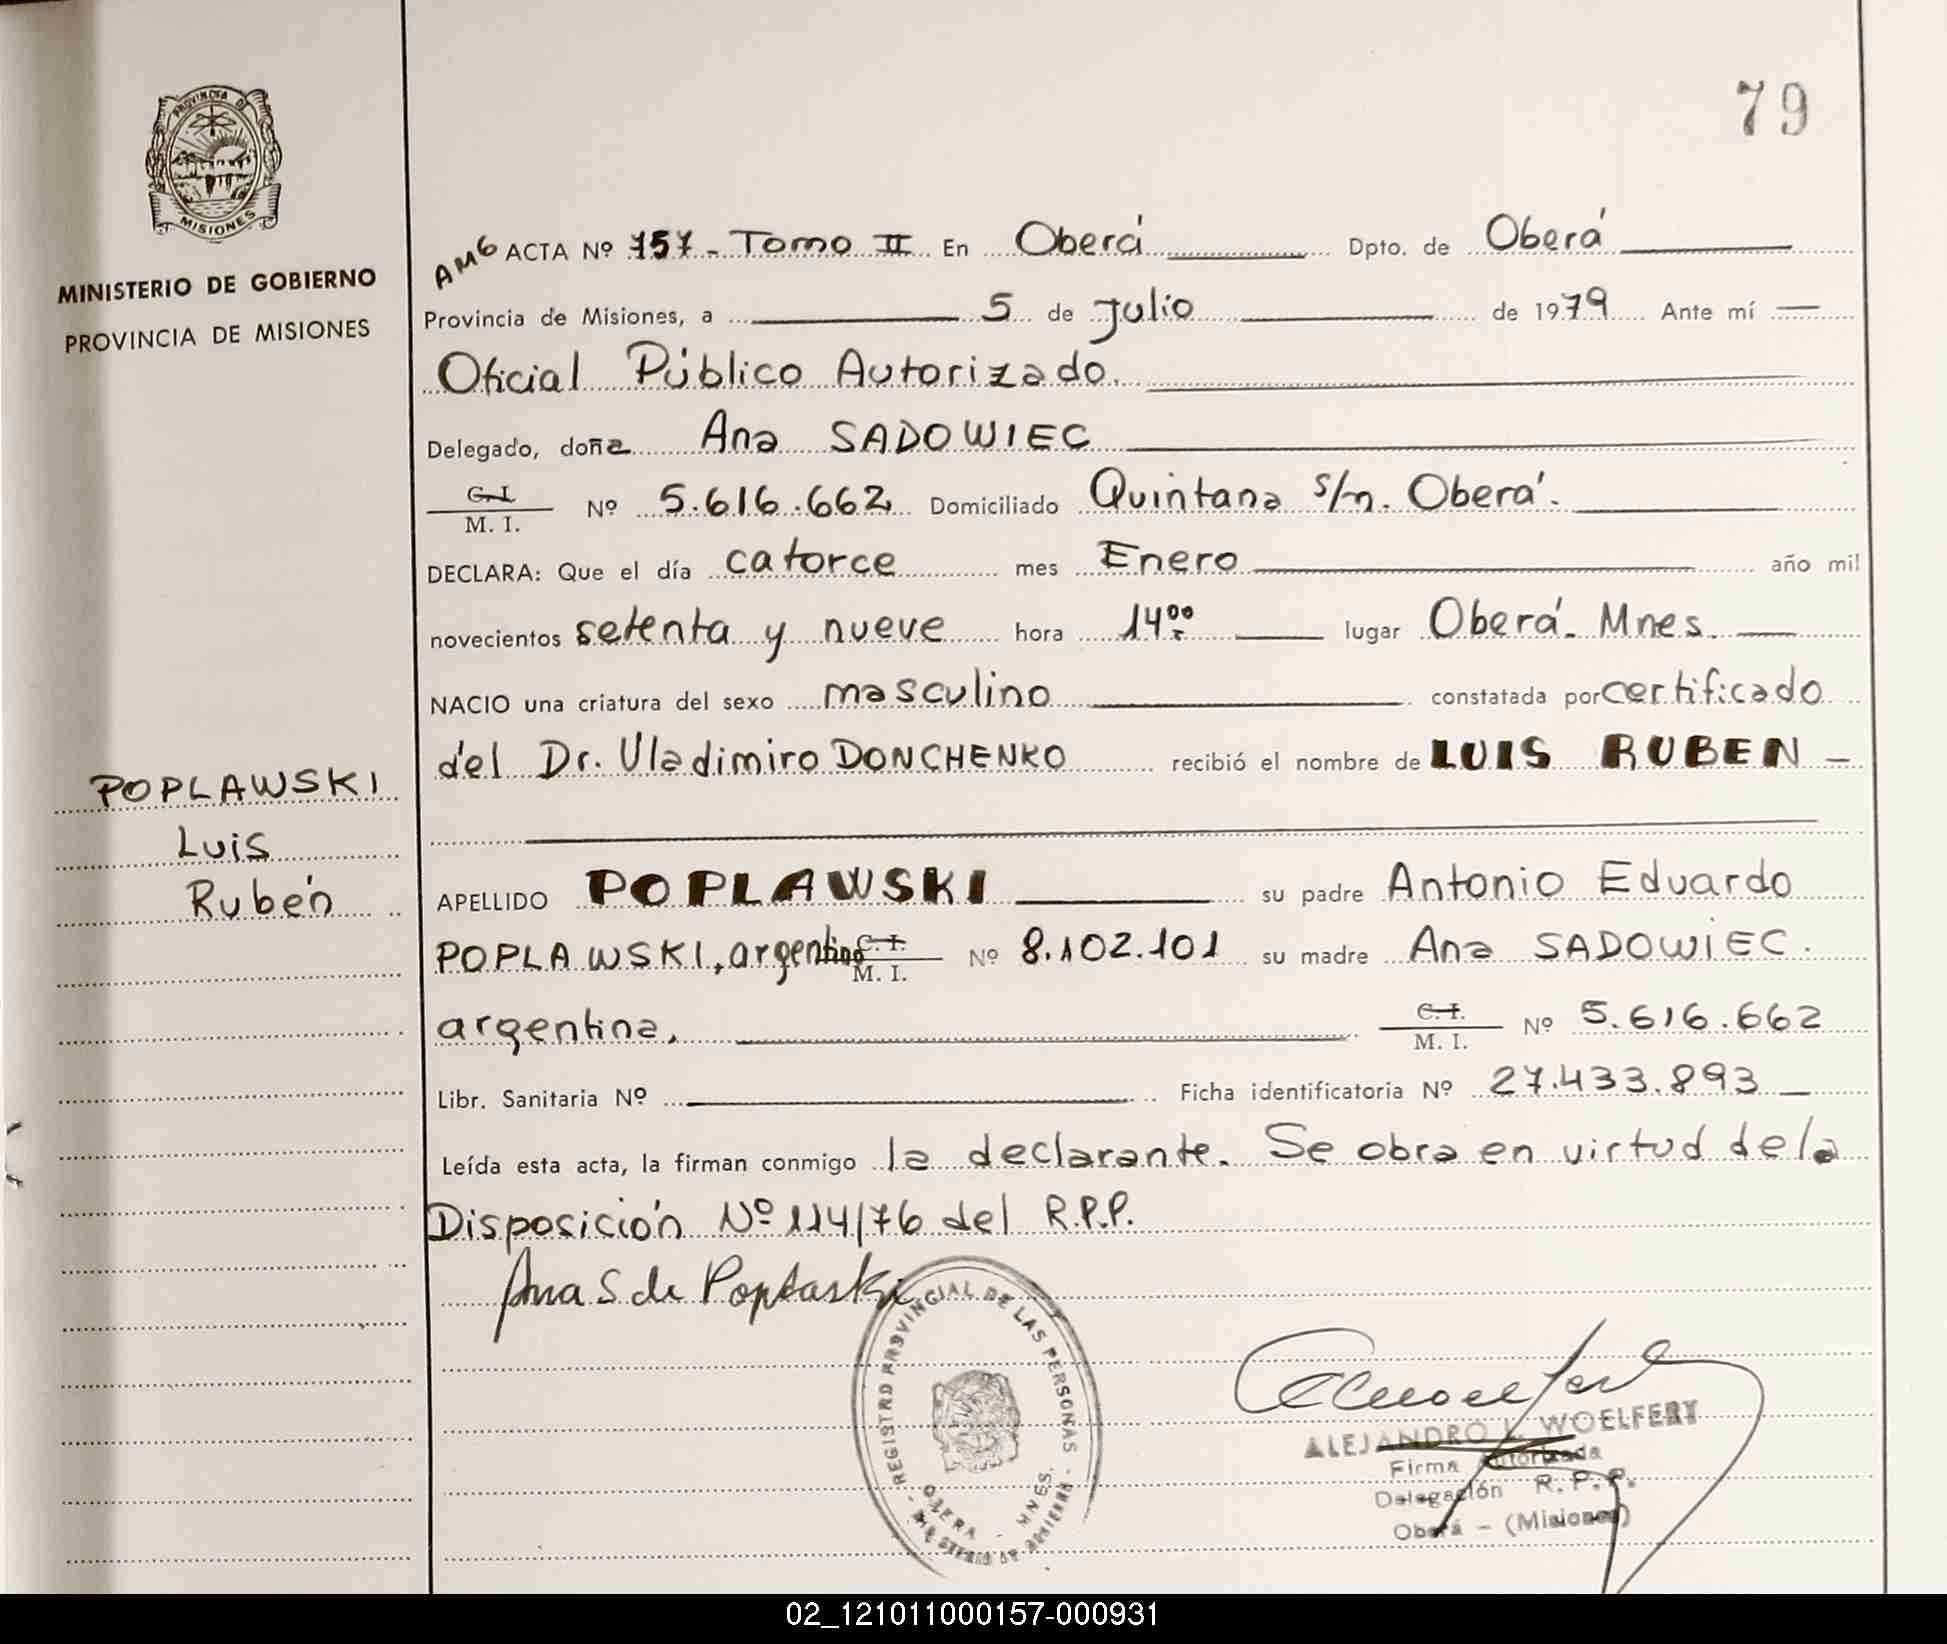 79
PROVINCIA DE
MISIONES
MINISTERIO DE GOBIERNO
PROVINCIA DE MISIONES
POPLAWSKI
Luis
Rubén
AMG ACTA Nº 157 - Tomo II En Oberá Dpto. de Oberá
Provincia de Misiones, a 5 de Julio de 1979 Ante mí
Oficial Público Autorizado.
Delegado, doña Ana SADOWIEC
C. I. / M. I. Nº 5.616.662 Domiciliado Quintana s/n. Oberá.
DECLARA: Que el día catorce mes Enero año mil
novecientos setenta y nueve hora 14 00 lugar Oberá. Mnes.
NACIO una criatura del sexo masculino constatada por certificado
del Dr. Vladimiro DONCHENKO recibió el nombre de LUIS RUBEN
APELLIDO POPLAWSKI su padre Antonio Eduardo
POPLAWSKI, argentino C. I. / M. I. Nº 8.102.101 su madre Ana SADOWIEC.
argentina, C. I. / M. I. Nº 5.616.662
Libr. Sanitaria Nº Ficha identificatoria Nº 27.433.893
Leída esta acta, la firman conmigo la declarante. Se obra en virtud de la
Disposición Nº 114/76 del R.P.P.
Ana S de Poplaski
REGISTRO PROVINCIAL DE LAS PERSONAS
OBERA - MNES.
ALEJANDRO L. WOELFERT
Firma Autorizada
Delegación R. P. P.
Oberá - (Misiones)
02_121011000157-000931